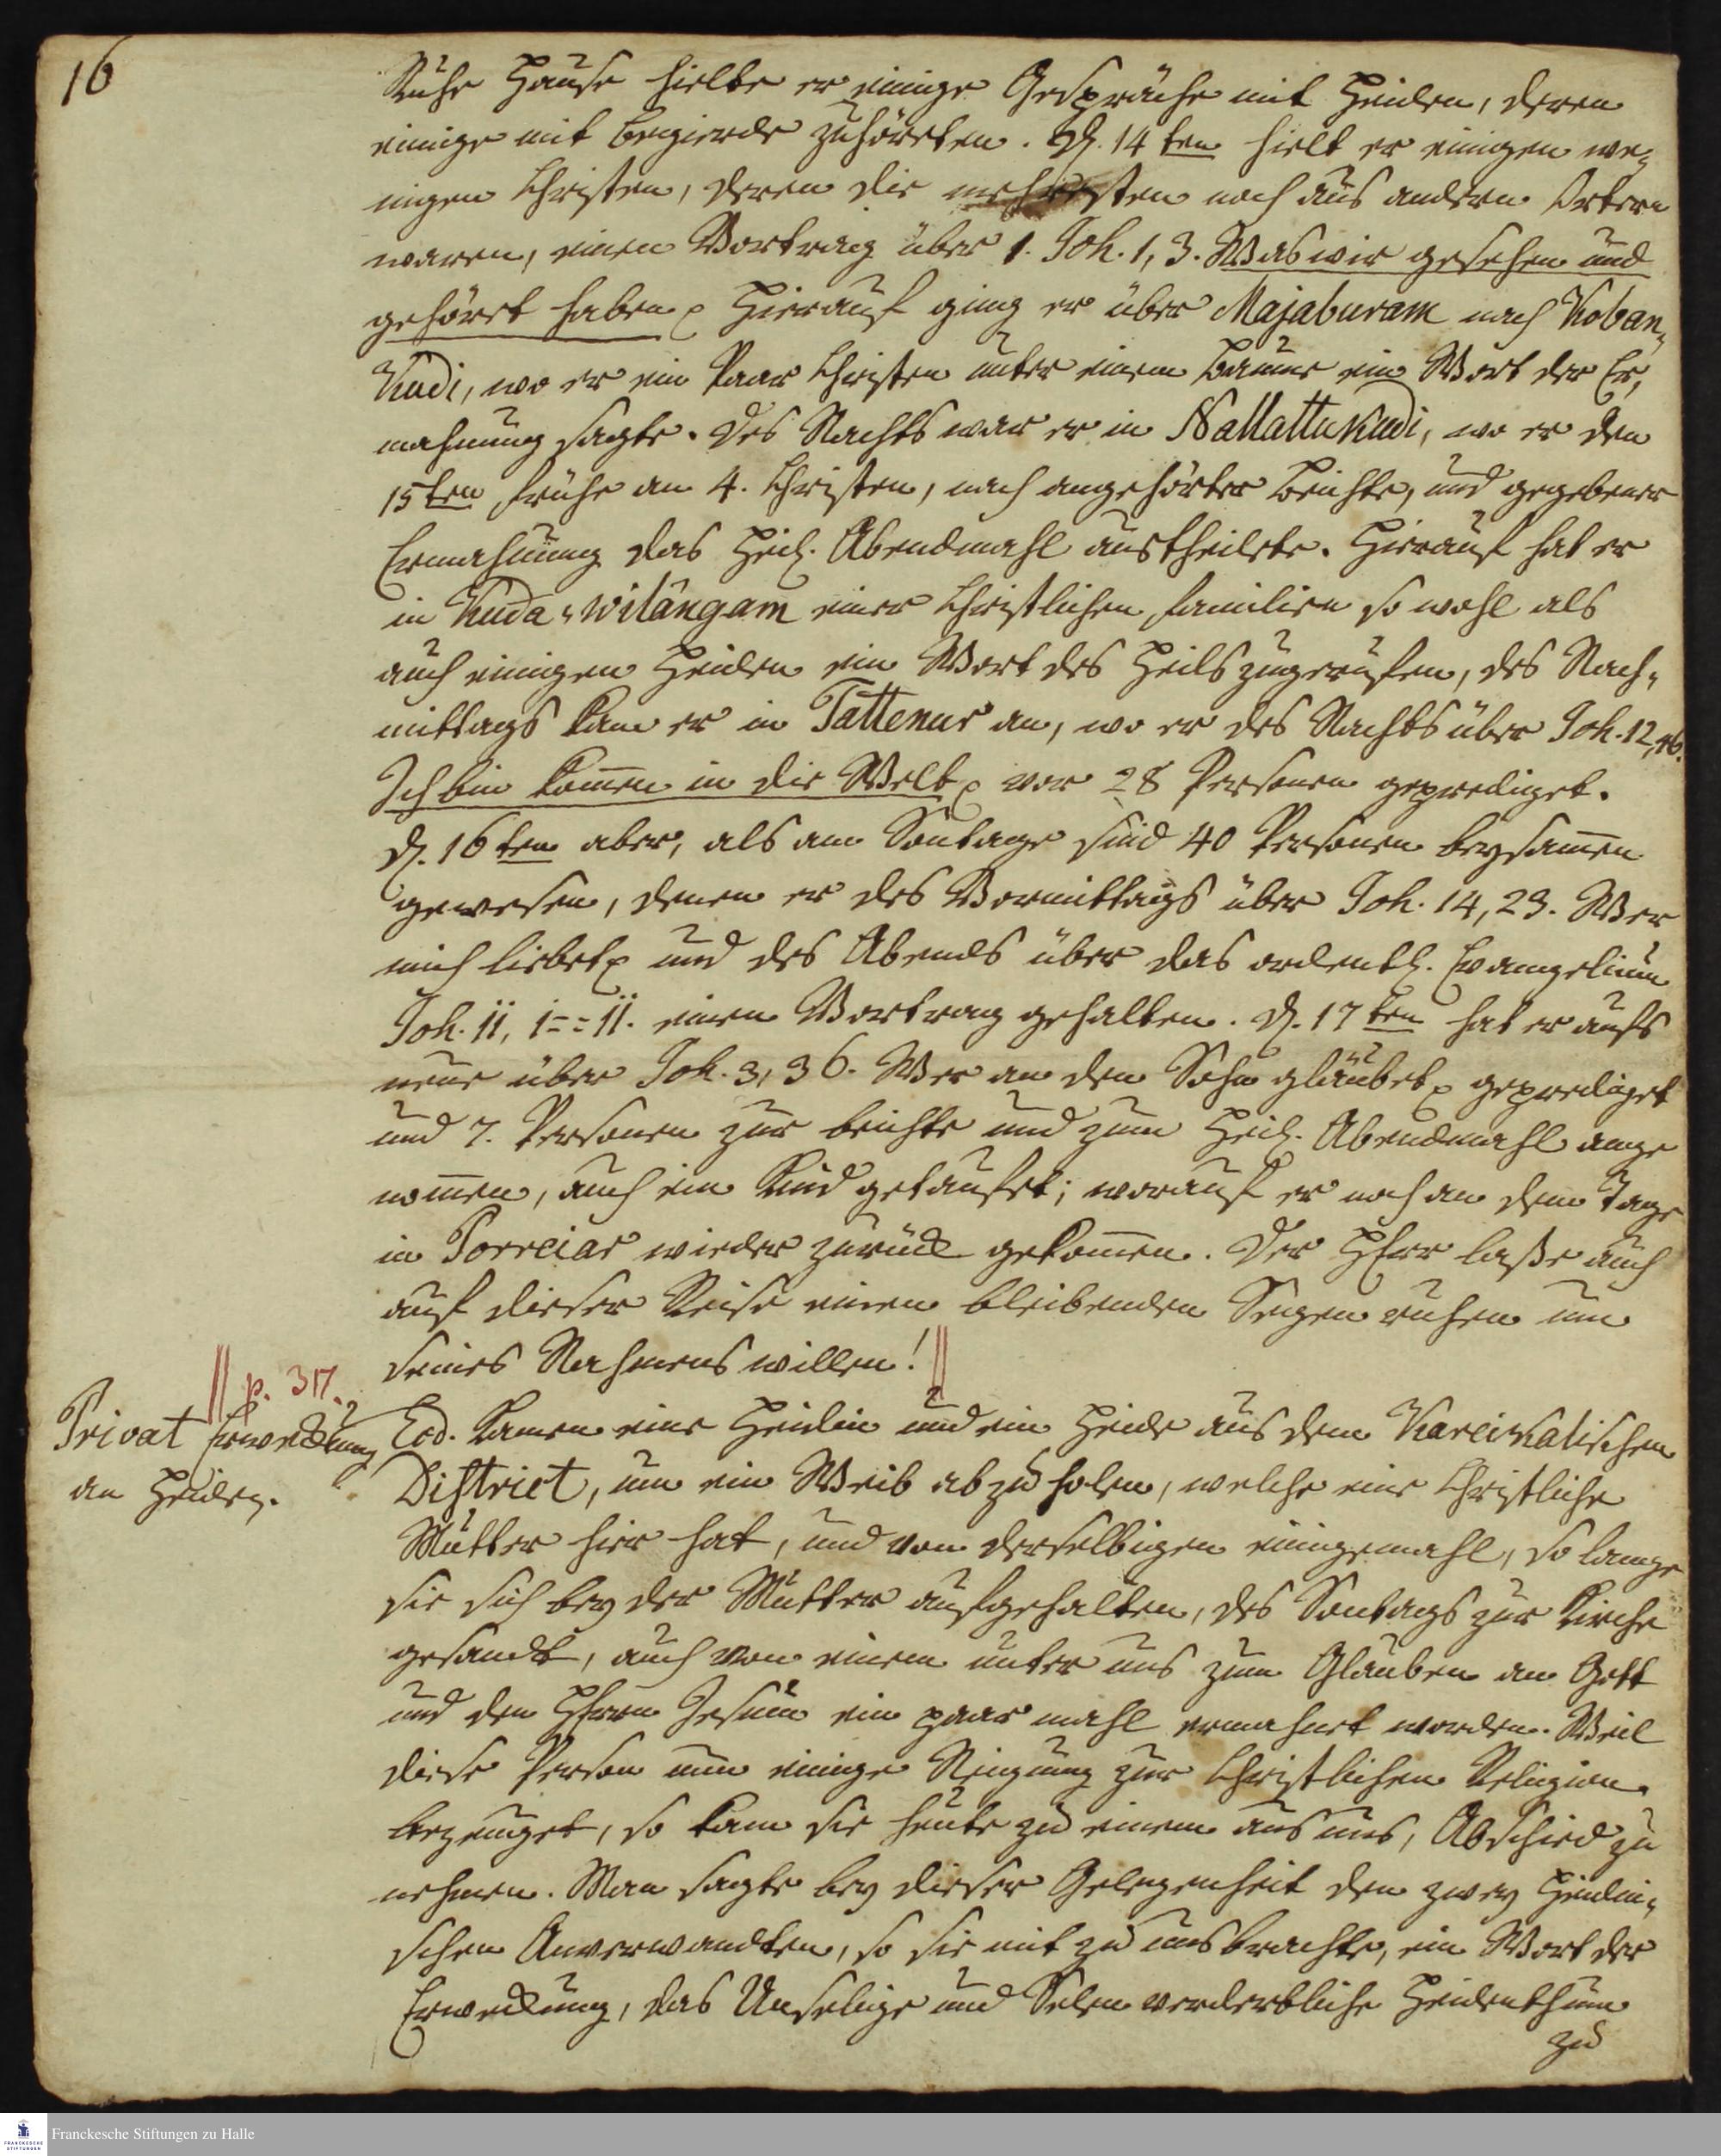 16
Ruhe Hause hielte er einige Gespräche mit Heiden, deren
einige mit Begierde zuhöreten. D. 14ten hielt er einigen we=
nigen Christen, deren die mehresten noch aus andern Örtern
waren, einen Vortrag über 1. Joh. 1, 3. Was wir gesehen und
gehöret haben. Hierauf ging er über Majaburam nach Koban=
Kudi, wo er ein Paar Christen unter einem Baume ein Wort der Er=
mahnung sagte. Des Nachts war er in Nallattukudi, wo er den
15ten frühe an 4. Christen, nach angehörter Beichte, und gegebener
Ermahnung das Heil. Abendmahl austheilete. Hierauf hat er
in Kuda=wilângam einer Christlichen familien so wohl als
auch einigen Heiden ein Wort des Heils zugerufen, des Nach=
mittags kam er in Tattenur an, wo er des Nachts über Joh. 12, 46.
Ich bin kom̄en in die Welt vor 28 Personen geprediget.
D. 16ten aber, als am Son̄tage sind 40 Personen beysam̄en
gewesen, denen er des Vormittags über Joh. 14, 23. Wer
mich liebet und des Abends über das ordentl. Evangelium
Joh. 11, 1==11. einen Vortrag gehalten. D. 17ten hat er aufs
neue über Joh. 3, 36. Wer an den Sohn gläubet geprediget
und 7. Personen zur beichte und zum Heil. Abendmahl ange
nom̄en, auch ein Kind getaufet; worauf er noch an dem Tage
in Porreiar wieder zurück gekom̄en. Der HErr laße auch
auf dieser Reise einen bleibenden Segen ruhen um
seines Nahmens willen! ||
|| p. 317.
Privat Erweckung
an Heiden.
Eod. kamen eine Heidin und ein Heide aus dem Kareikalischen
District, um ein Weib abzuholen, welche eine Christliche
Mutter hier hat, und von derselbigen einigemahl, so lange
sie sich bey der Mutter aufgehalten, des Son̄tags zur Kirche
gesandt, auch von einem unter uns zum Glauben an Gott
und den HErrn Jesum̄ ein paar mahl ermahnet worden. Weil
diese Person nun einige Neigung zur Christlichen Religion
bezeuget, so kam sie heute zu einem aus uns, Abschied zu
nehmen. Man sagte bey dieser Gelegenheit den zwey Heidni=
schen Anverwandten, so sie mit zu uns brachte, ein Wort der
Erweckung, das Unselige und Selen verderbliche Heidenthum
zu
Franckesche Stiftungen zu Halle